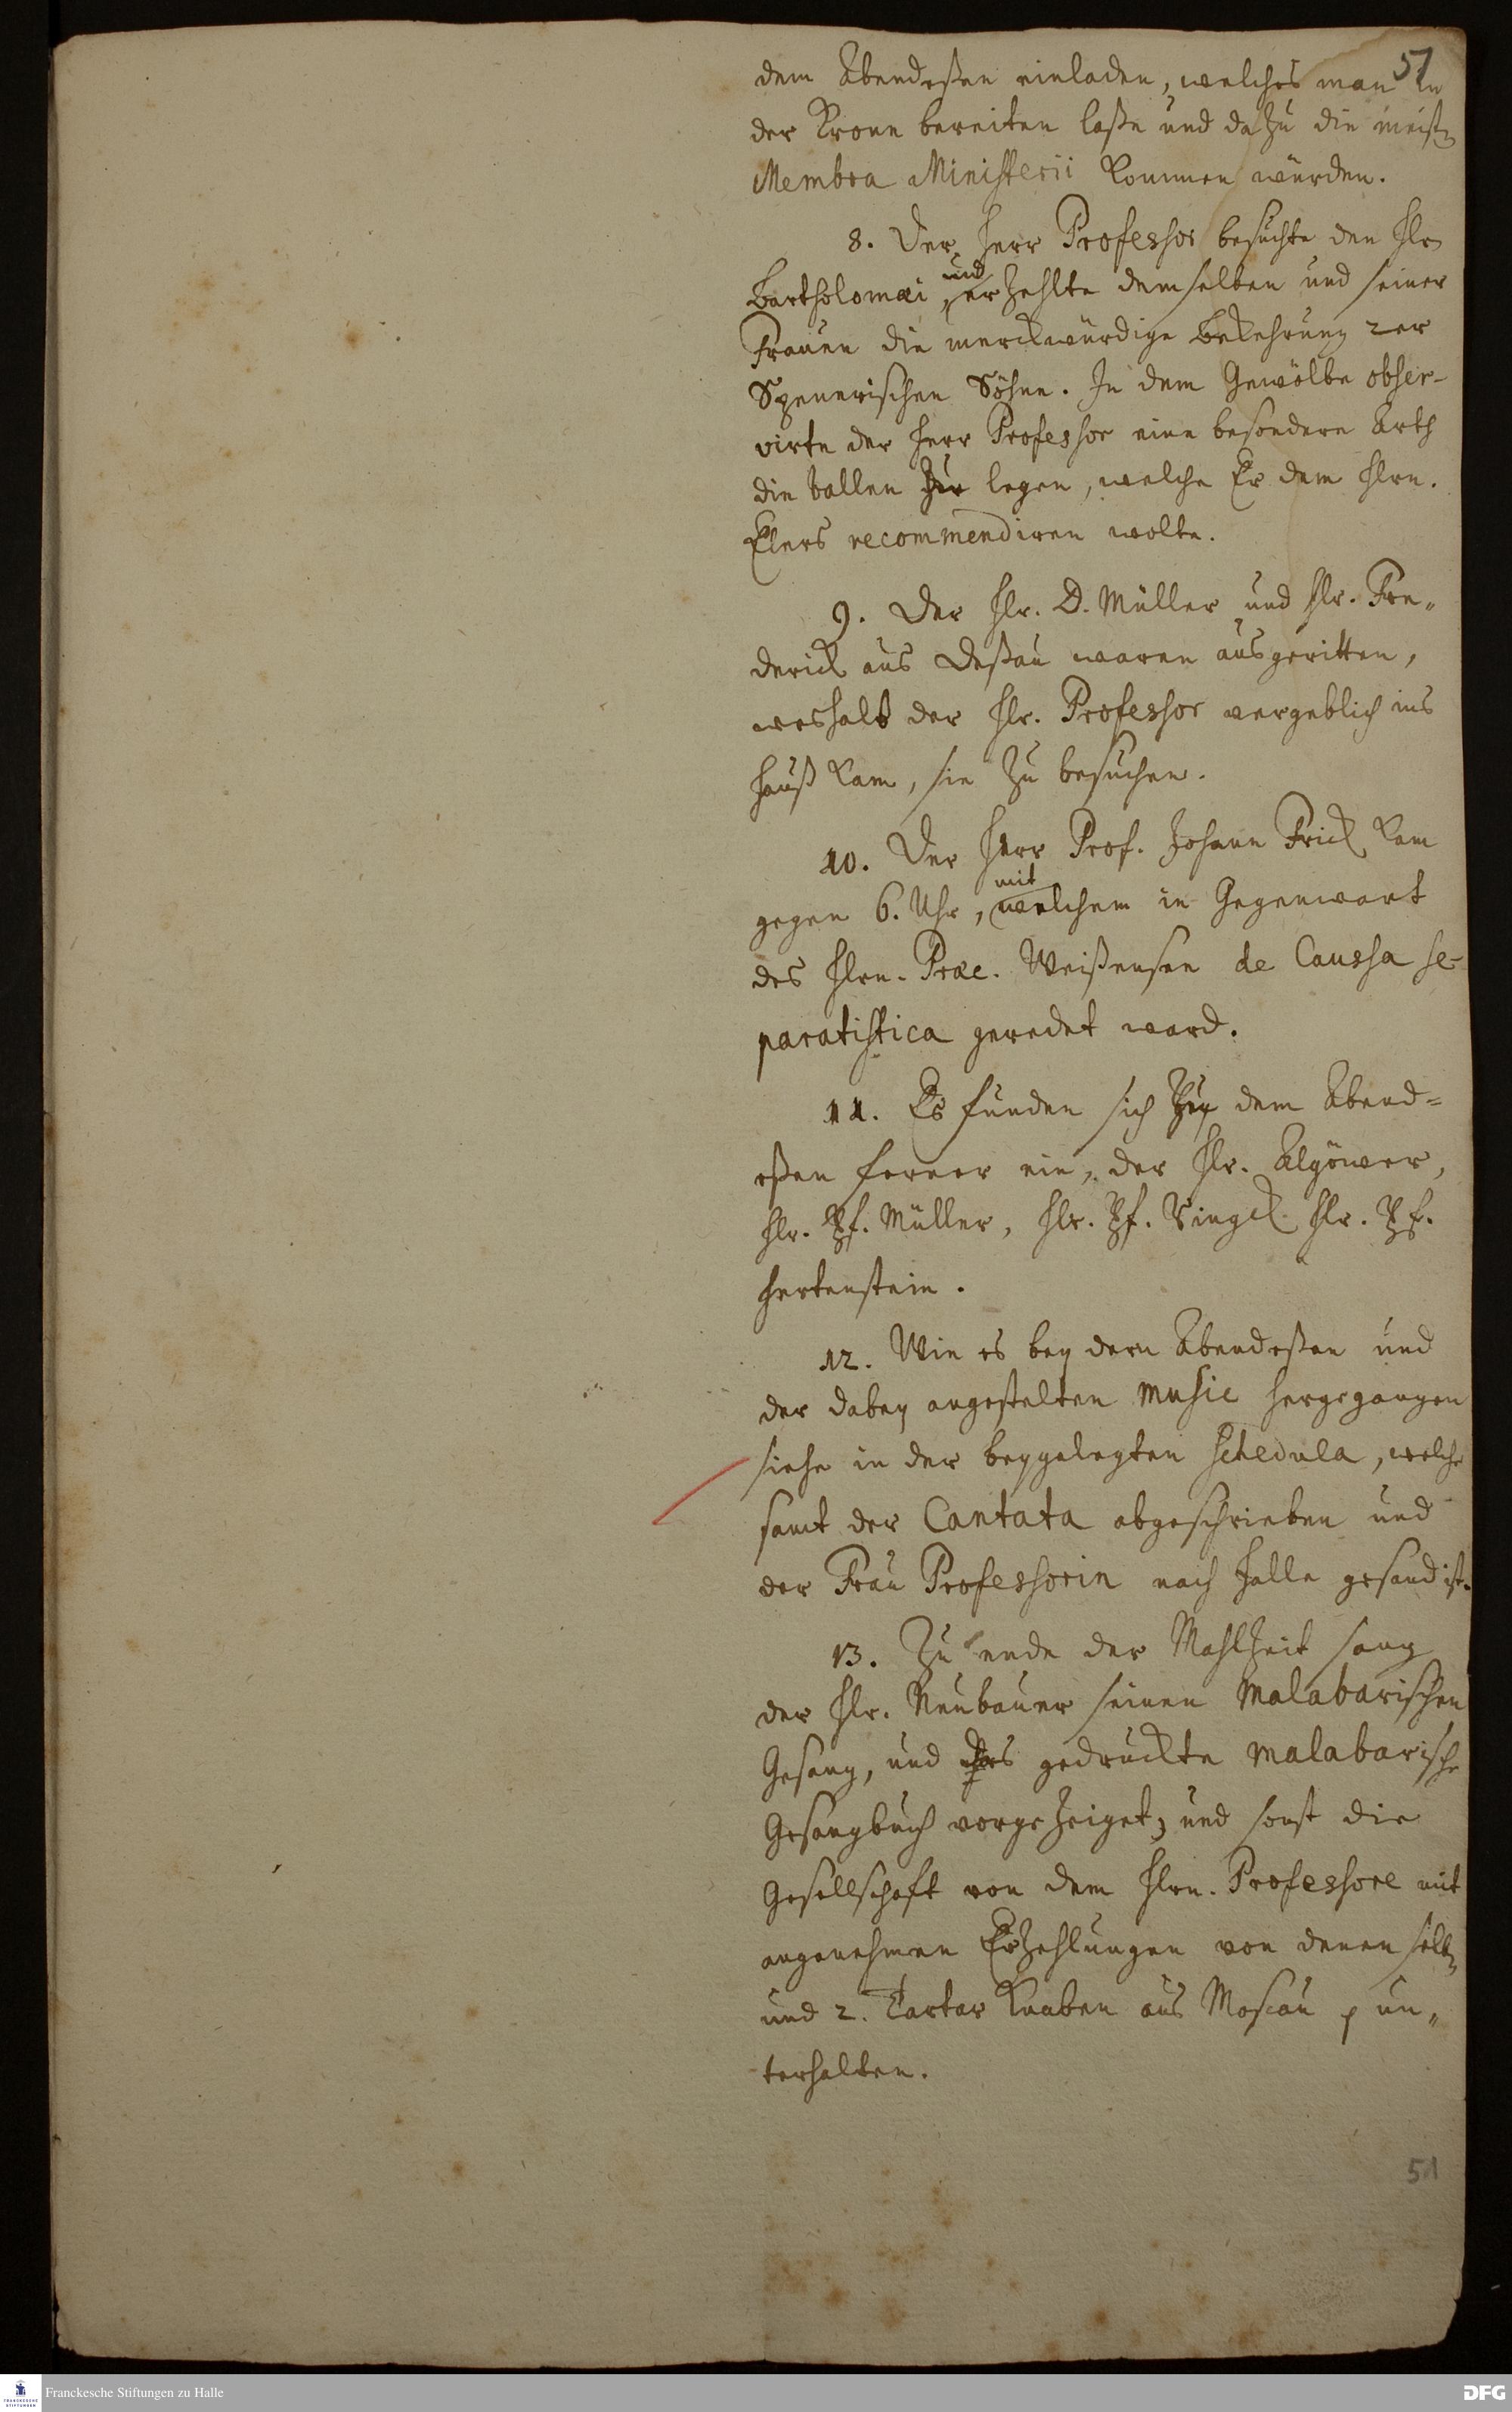 51
dem Abendeßen einladen, welches man in
der Krone bereiten laße und dazu die meisten
Membra Ministerii kommen würden.
8. Der Herr Professor besuchte den Hr
Bartholomæi und erzehlte demselben und seiner
Frauen die merckwürdige Bekehrung 2er
Spenerischen Söhne. In dem Gewölbe obser-
virte der Herr Professor eine besondere Arth
die ballen zu legen, welche Er dem Hrn.
Elers recommendiren wolte.
9. Der Hr. D. Müller und Hr. Fre„
derick aus Deßau waren ausgeritten,
weshalb der Hr. Professor vergeblich ins
Hauß kam, sie zu besuchen.
10. Der Herr Prof. Johann Frick kam
gegen 6. Uhr, mit welchem in Gegenwart
des Hrn. Præc. Weißensee de Caussa se-
paratistica geredet ward.
11. Es funden sich bey dem Abend=
eßen ferner ein, der Hr. Algöwer,
Hr. Pf. Müller, Hr. Pf. Ringck Hr. Pf.
Hertenstein.
12. Wie es bey dem Abendeßen und
der dabey angestelten Music hergegangen
siehe in der beygelegten schedula, welche
samt der Cantata abgeschrieben und
der Frau Professorin nach Halle gesand ist.
13. Zu ende der Mahlzeit sang
der Hr. Neubauer seinen Malabarischen
Gesang, und das gedruckte Malabarische
Gesangbuch vorgezeiget, und sonst die
Gesellschaft von dem Hrn. Professore mit
angenehmen Erzehlungen von denenselben
und 2. Tartar Knaben aus Moscau p un„
terhalten.
51
Franckesche Stiftungen zu Halle
DFG